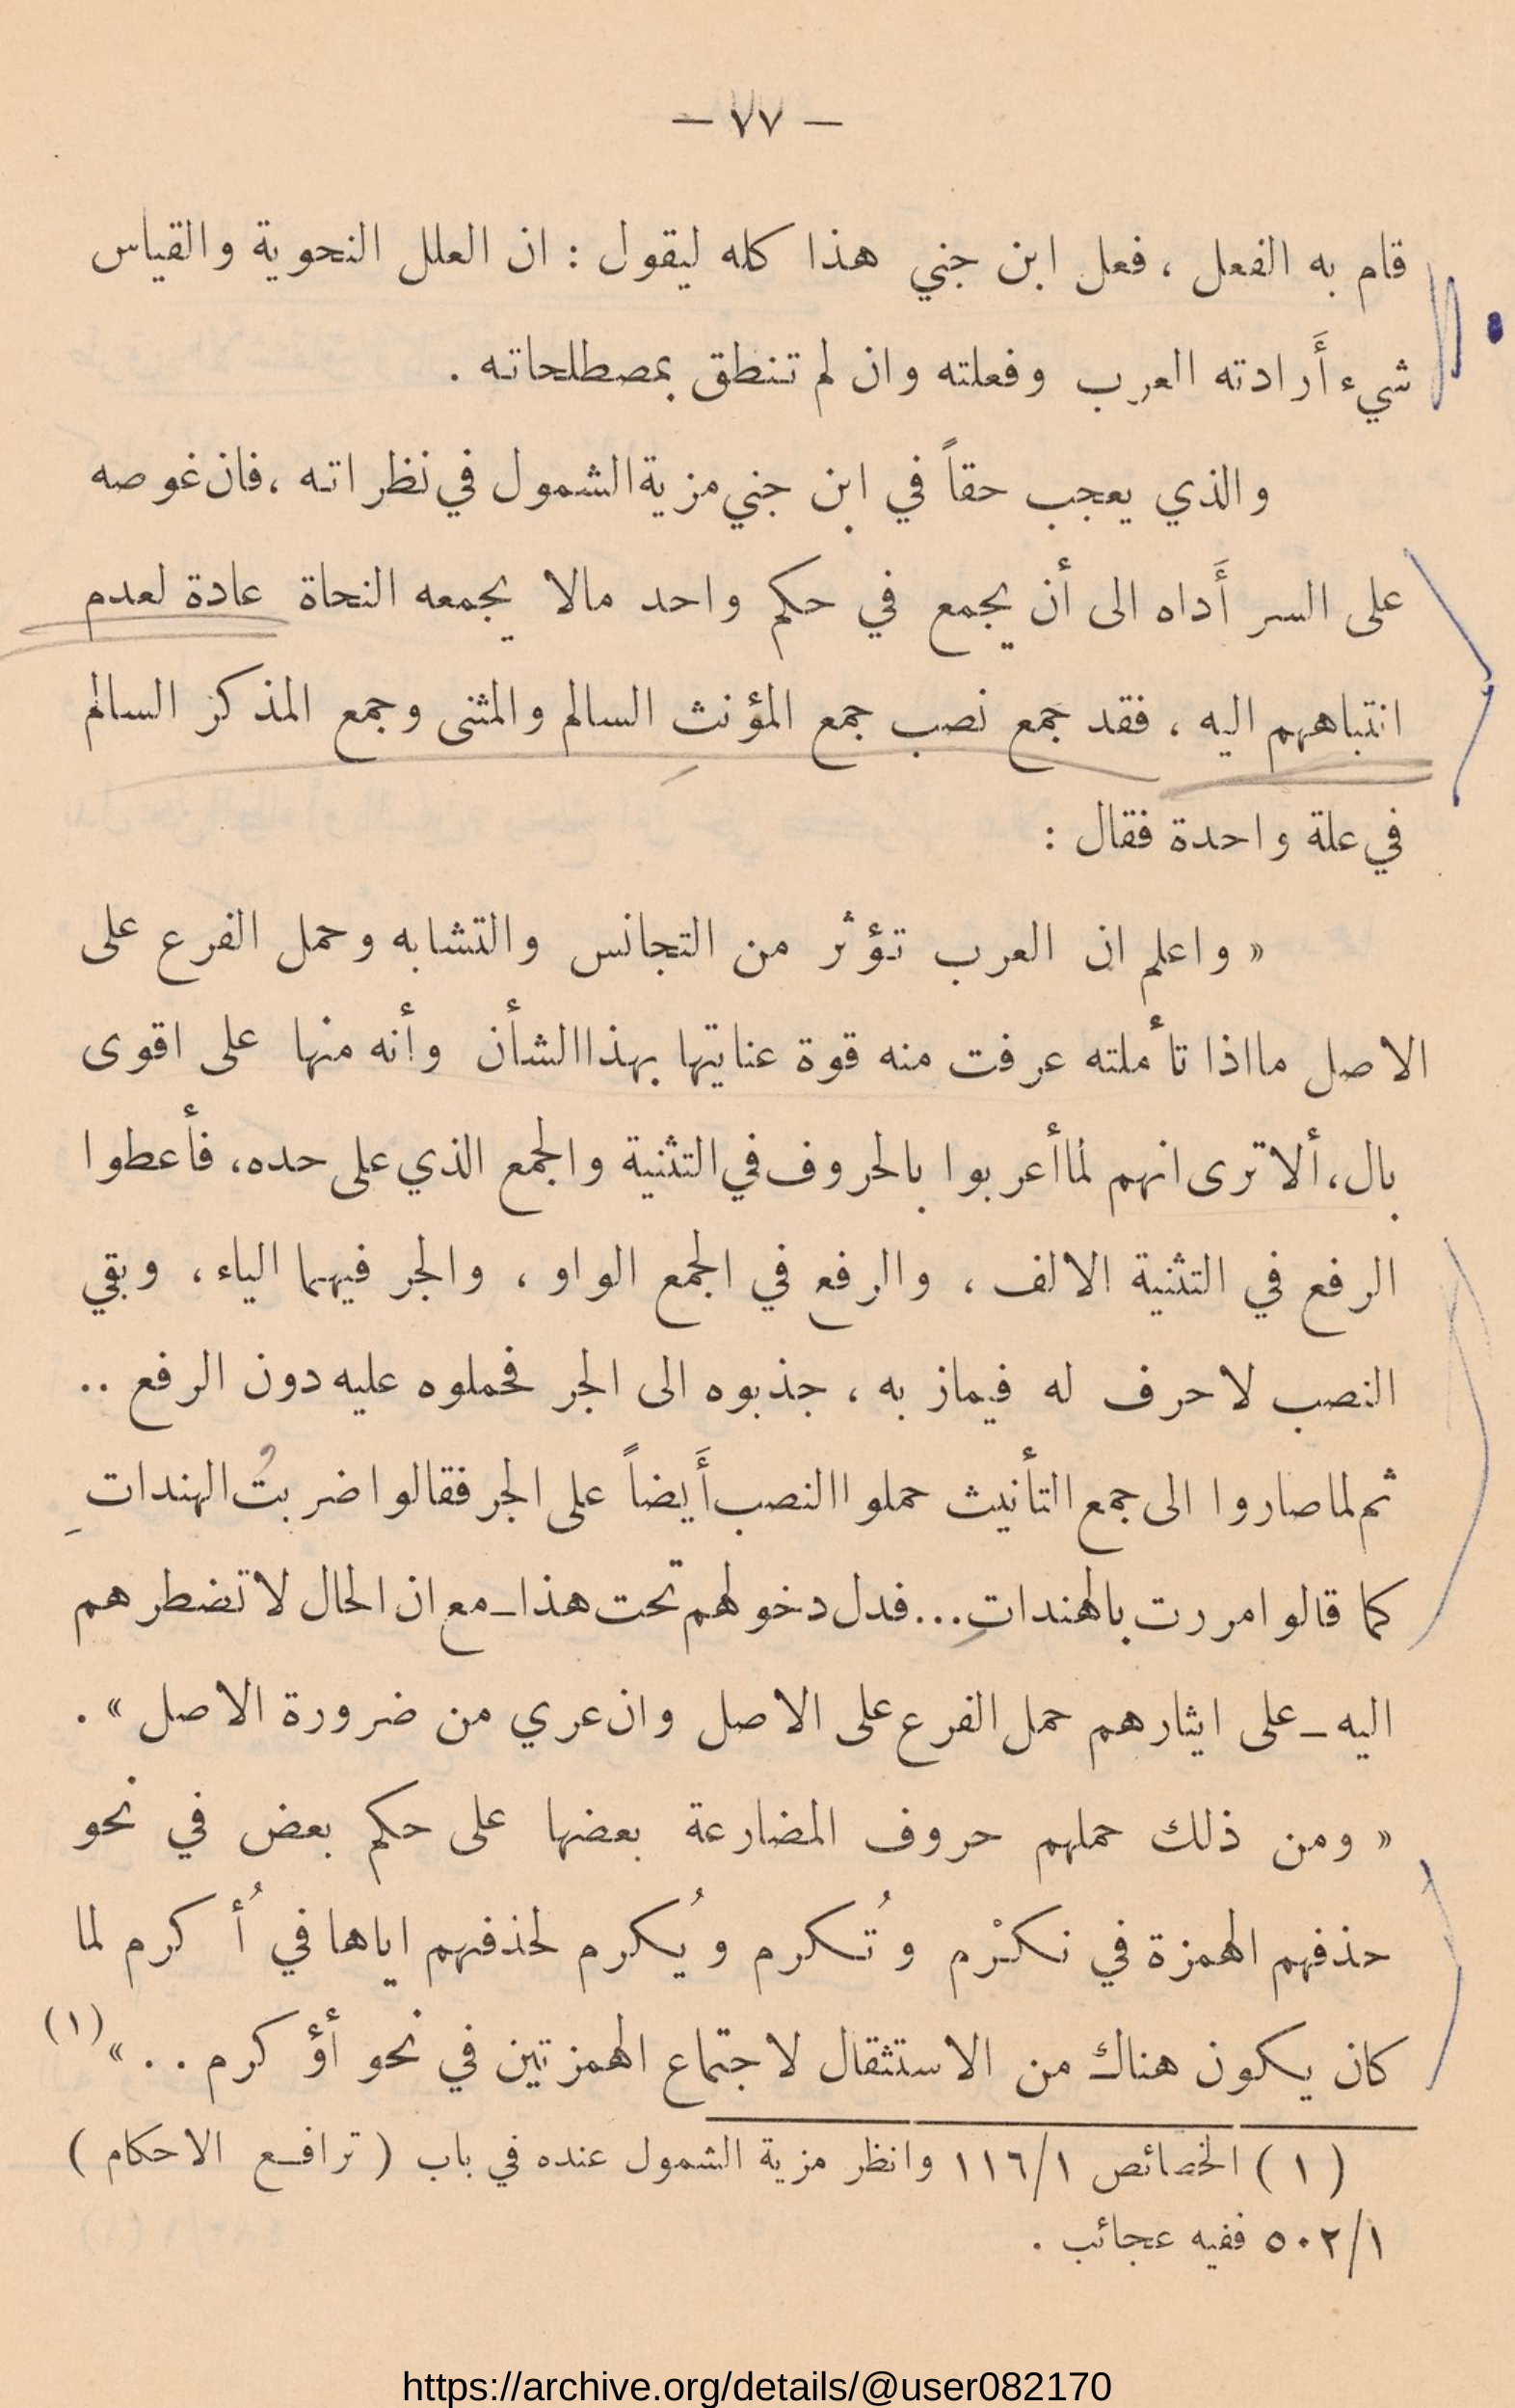 — ٧٧ —
قام به الفعل ، فعل ابن جني هذا كله ليقول : ان العلل النحوية والقياس
شيء أَرادته العرب وفعلته وان لم تنطق بمصطلحاته .
والذي يعجب حقاً في ابن جني مزية الشمول في نظراته ، فان غوصه
على السر أَداه الى أن يجمع في حكم واحد مالا يجمعه النحاة عادة لعدم
انتباههم اليه ، فقد جمع نصب جمع المؤنث السالم والمثنى وجمع المذكر السالم
في علة واحدة فقال :
« واعلم ان العرب تؤثر من التجانس والتشابه وحمل الفرع على
الاصل مااذا تأملته عرفت منه قوة عنايتها بهذا الشأن وأنه منها على اقوى
بال، ألا ترى انهم لما أعربوا بالحروف في التثنية والجمع الذي على حده، فأعطوا
الرفع في التثنية الالف ، والرفع في الجمع الواو ، والجر فيهما الياء ، وبقي
النصب لا حرف له فيماز به ، جذبوه الى الجر فحملوه عليه دون الرفع ..
ثم لما صاروا الى جمع التأنيث حملوا النصب أَيضاً على الجر فقالوا ضربتُ الهنداتِ
كما قالوا مررت بالهنداتِ... فدل دخولهم تحت هذا ـ مع ان الحال لا تضطرهم
اليه ـ على ايثارهم حمل الفرع على الاصل وان عري من ضرورة الاصل » .
« ومن ذلك حملهم حروف المضارعة بعضها على حكم بعض في نحو
حذفهم الهمزة في نكْرم وتُكرم ويُكرم لحذفهم اياها في أُكرم لما
كان يكون هناك من الاستثقال لاجتماع الهمزتين في نحو أؤكرم . . » (١)
( ١ ) الخصائص ١١٦/١ وانظر مزية الشمول عنده في باب ( ترافع الاحكام )
٥٠٢/١ ففيه عجائب .
https://archive.org/details/@user082170